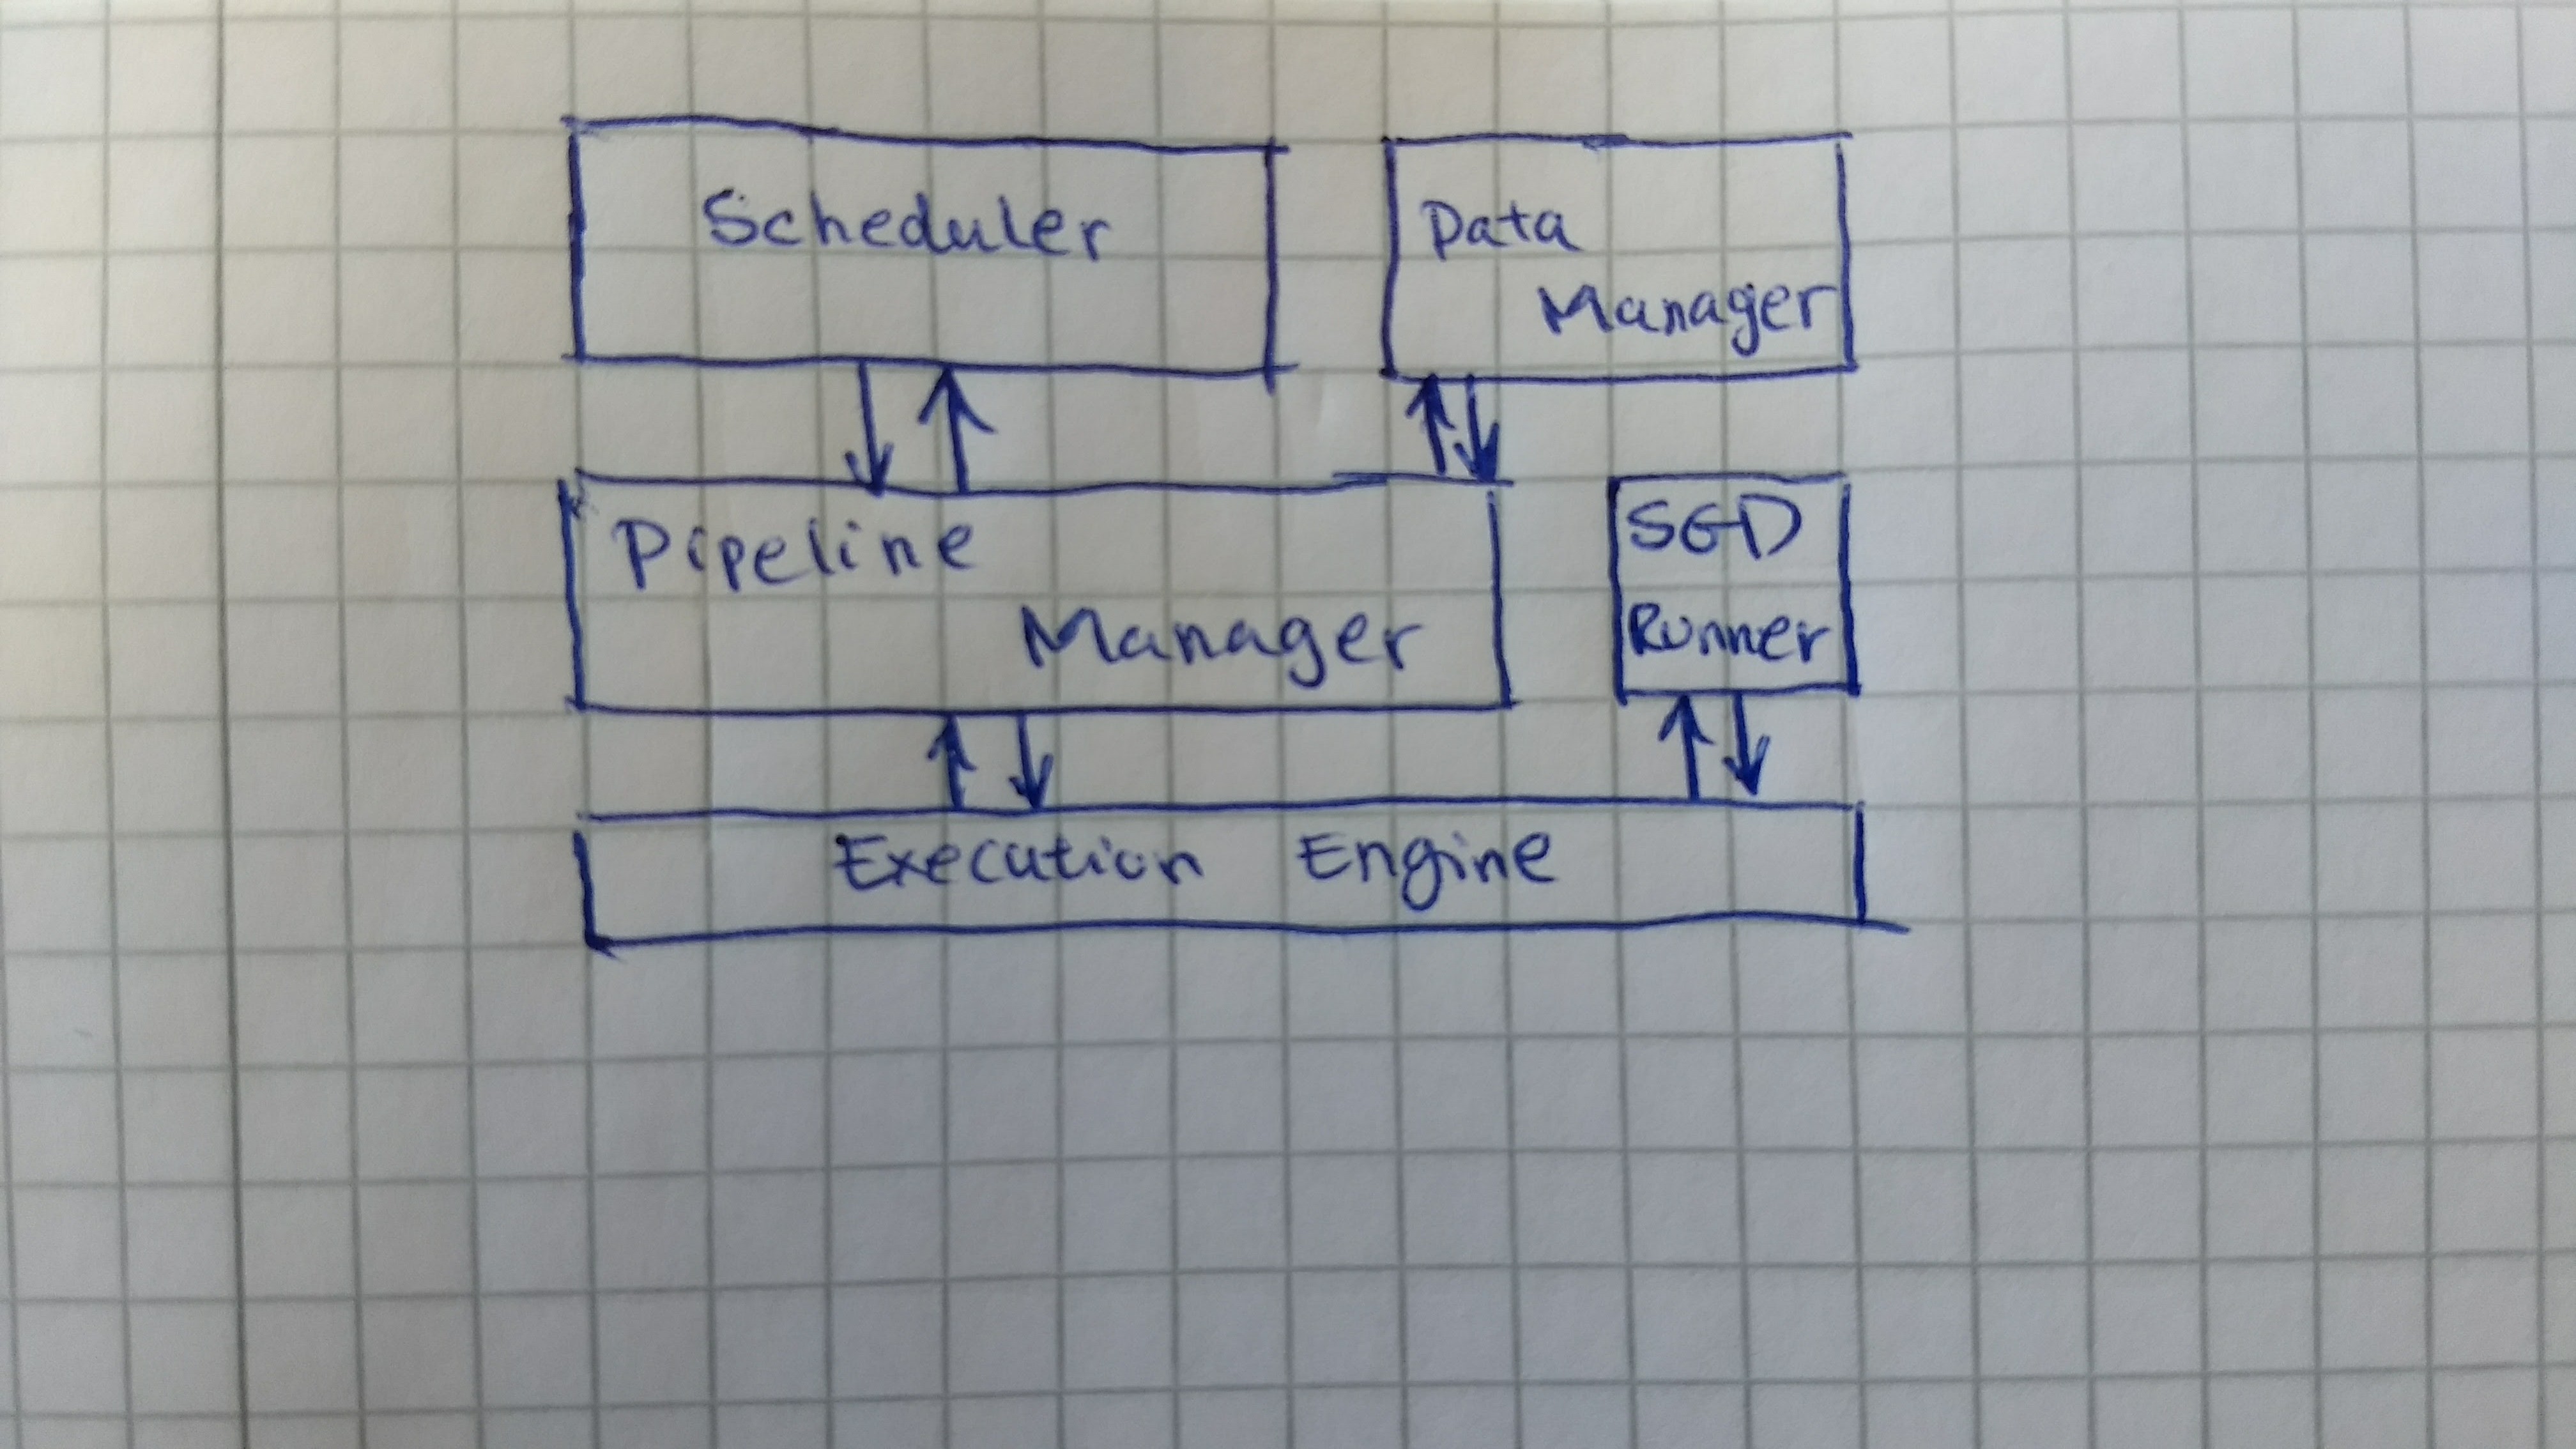 Scheduler
Data
Manager
Pipeline
Manager
SGD
Runner
Execution Engine